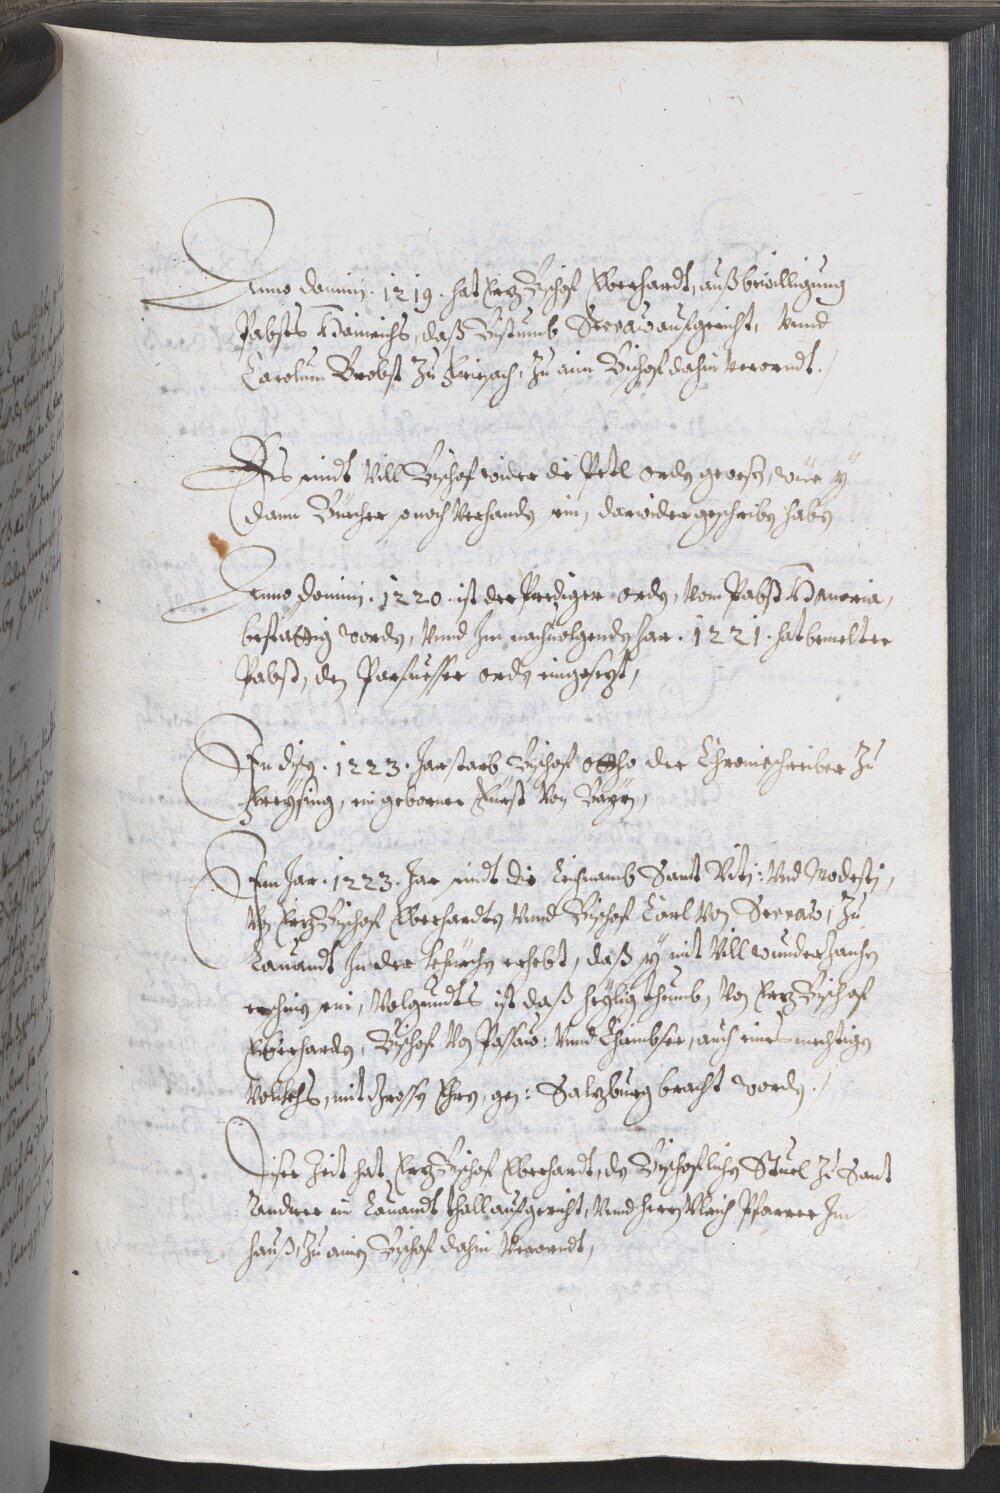 Anno domini · 1219 · hat Ertz Bischof Eberhardt, auß bewilligung
Pabsts Hainrichs, daß Bistumb Seccaw aufgericht, Vnnd
Carolum Brobst Zu Friesach, Zu aim Bischof dahin verorndt ./
Es sindt Vill Bischof wider die Petl ordn gewesn, wie sy
dann Büecher, so noch verhandn sein, darwider geschribn habn
Anno Domini · 1220 · ist der Prediger ordn, vom Pabst Honoria,
bestattig wordn, Vnnd Im nachuolgendn Jar · 1221 · hat bemelter
Pabst, den Parfuesser ordn eingesezt,
In disn · 1223 · Jar starb Bischof Ottho der Chronickschreiber Zu
Freysing, ein geborner Fürst Von Bayrn,
Im Jar · 1223 · Jar sindt die Leichnamb Sant Viti: Vnd Modesti,
Vom Ertz Bischof Eberhardtn Vnnd Bischof Carl Von Seccaw, Zu
Lauandt In der Khirchn erhebt, daß sy mit Vill wunderzaichn
erschinen sein, Volgundts ist daß heyligthumb, Von Ertz Bischof
Eberhardn, Bischof Von Passaw: Vnnd Chiembsee, auch eines mechtign
Volckhs, mit grossn Ehrn, gen: Saltzburg bracht wordn ./
Diser Zeit hat Ertz Bischof Eberhardt, den Bischoflichn Stuel Zu Sant
Andree im Lauandt thall aufgericht, Vnnd herrn Vlrich Pfarrer Im
hauß, Zu ainem Bischof dahin Verorndt,